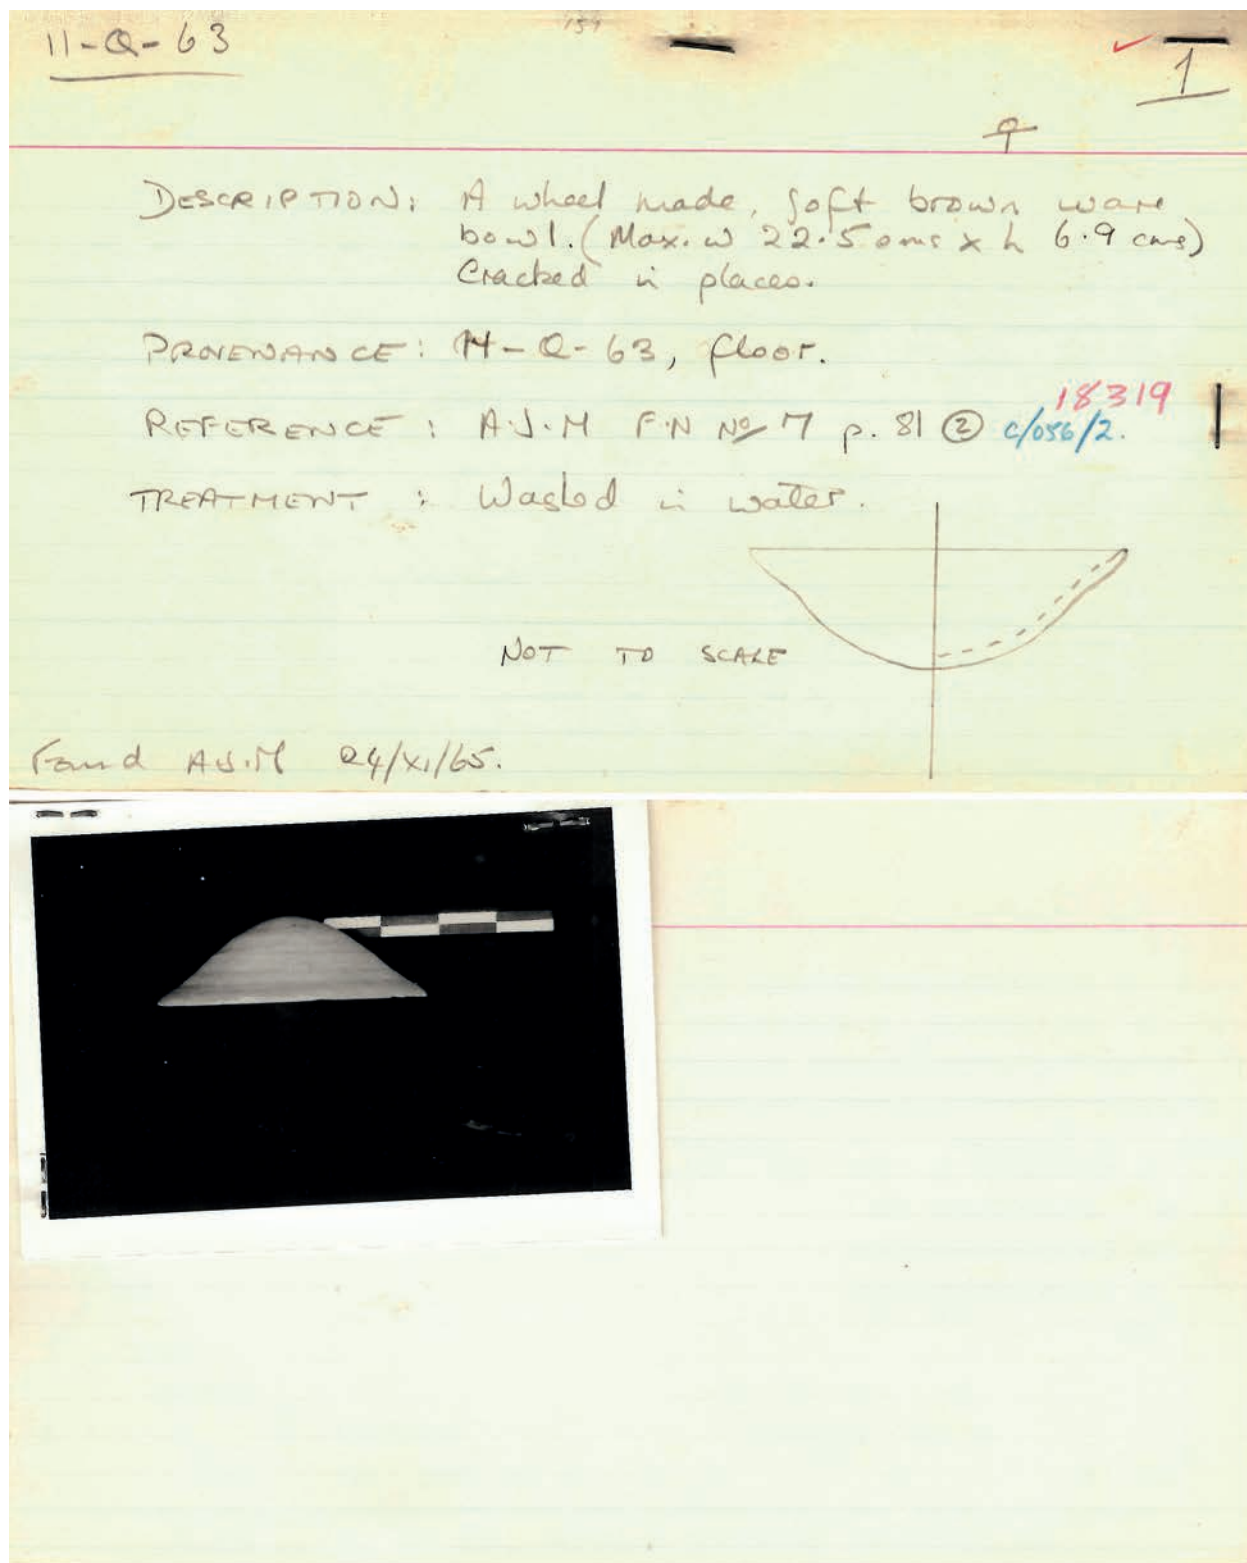 11-Q-63
154
1
DESCRIPTION: A wheel made, soft brown ware
bowl. (Max. w 22.5 cms x h 6.9 cms)
Cracked in places.
PROVENANCE: 11-Q-63, floor.
18319
REFERENCE: A.J.M F.N No 7 p. 81 ② c/056/2.
TREATMENT: Washed in water.
NOT TO SCALE
Found A.J.M 24/XI/65.